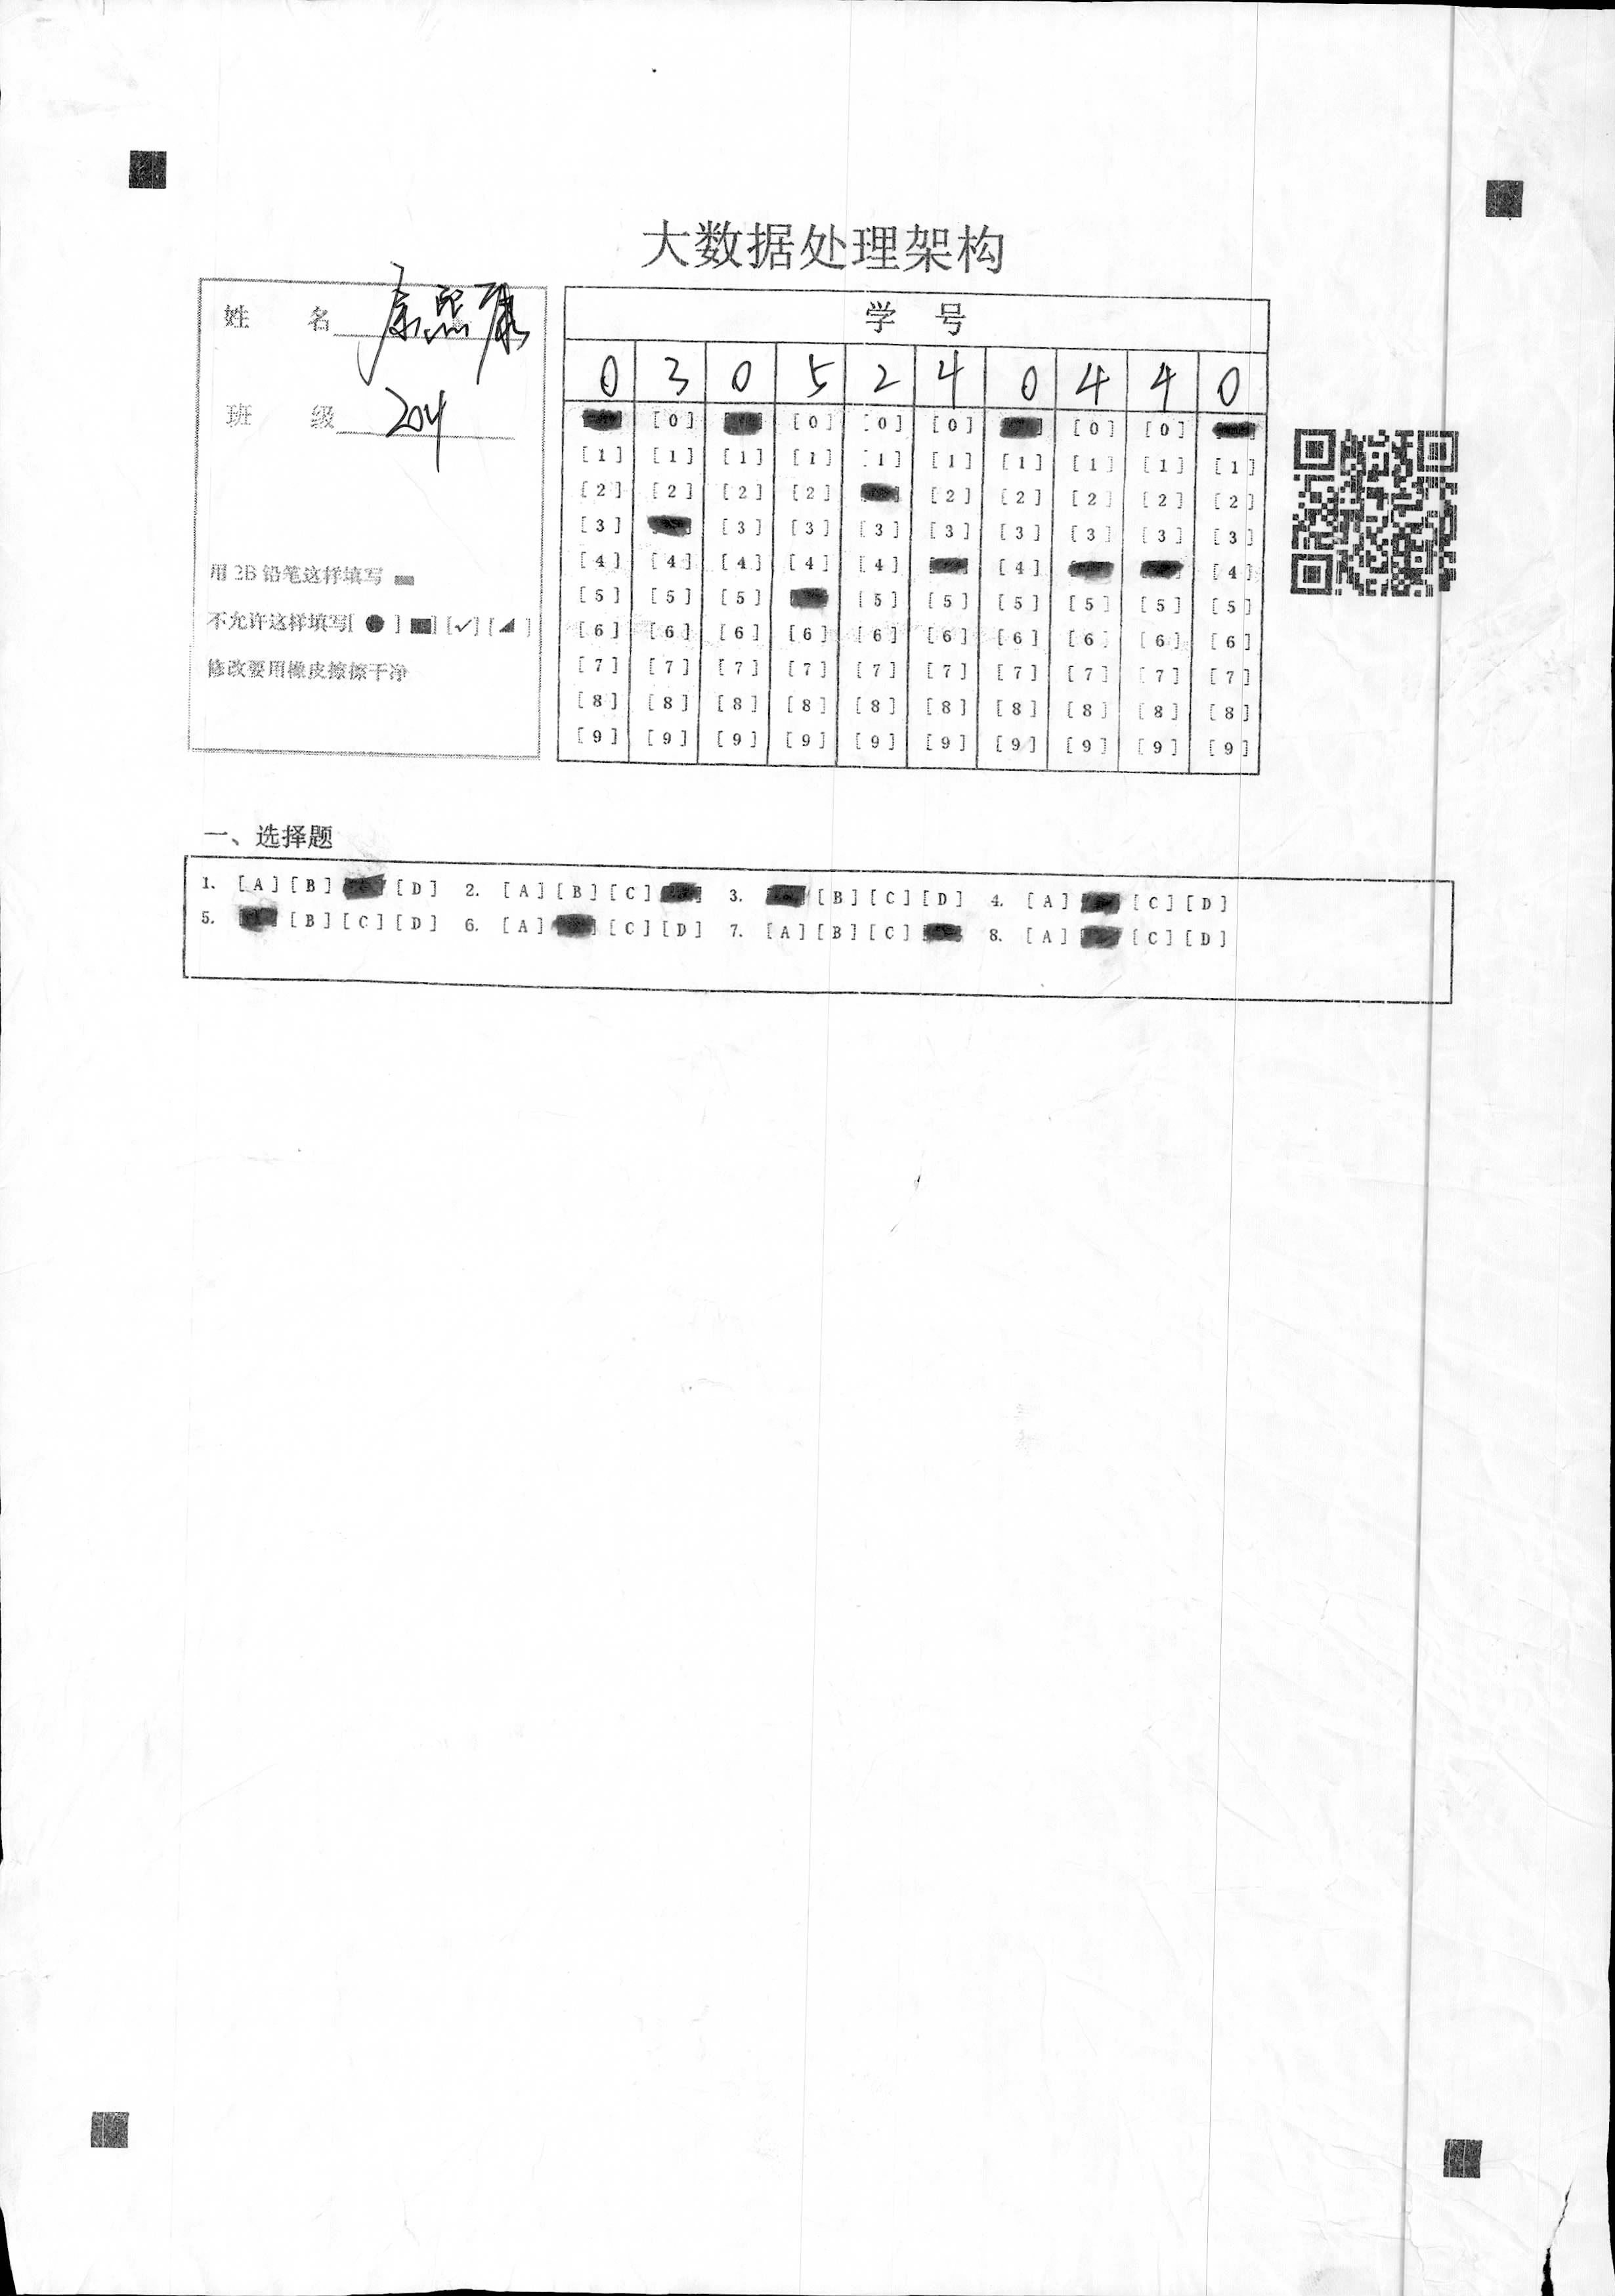 大数据处理架构
姓 名 康熙康
班 级 204
用 2B 铅笔这样填写
不允许这样填写[ ● ] [■] [✓] [◢ ]
修改要用橡皮擦擦干净
学 号
0 3 0 5 2 4 0 4 4 0
[0] [0] [0] [0] [0] [0]
[1] [1] [1] [1] [1] [1] [1] [1] [1] [1]
[2] [2] [2] [2] [2] [2] [2] [2] [2]
[3] [3] [3] [3] [3] [3] [3] [3] [3]
[4] [4] [4] [4] [4] [4] [4]
[5] [5] [5] [5] [5] [5] [5] [5] [5]
[6] [6] [6] [6] [6] [6] [6] [6] [6] [6]
[7] [7] [7] [7] [7] [7] [7] [7] [7] [7]
[8] [8] [8] [8] [8] [8] [8] [8] [8] [8]
[9] [9] [9] [9] [9] [9] [9] [9] [9] [9]
一、选择题
1. [A] [B] [D] 2. [A] [B] [C] 3. [B] [C] [D] 4. [A] [C] [D]
5. [B] [C] [D] 6. [A] [C] [D] 7. [A] [B] [C] 8. [A] [C] [D]